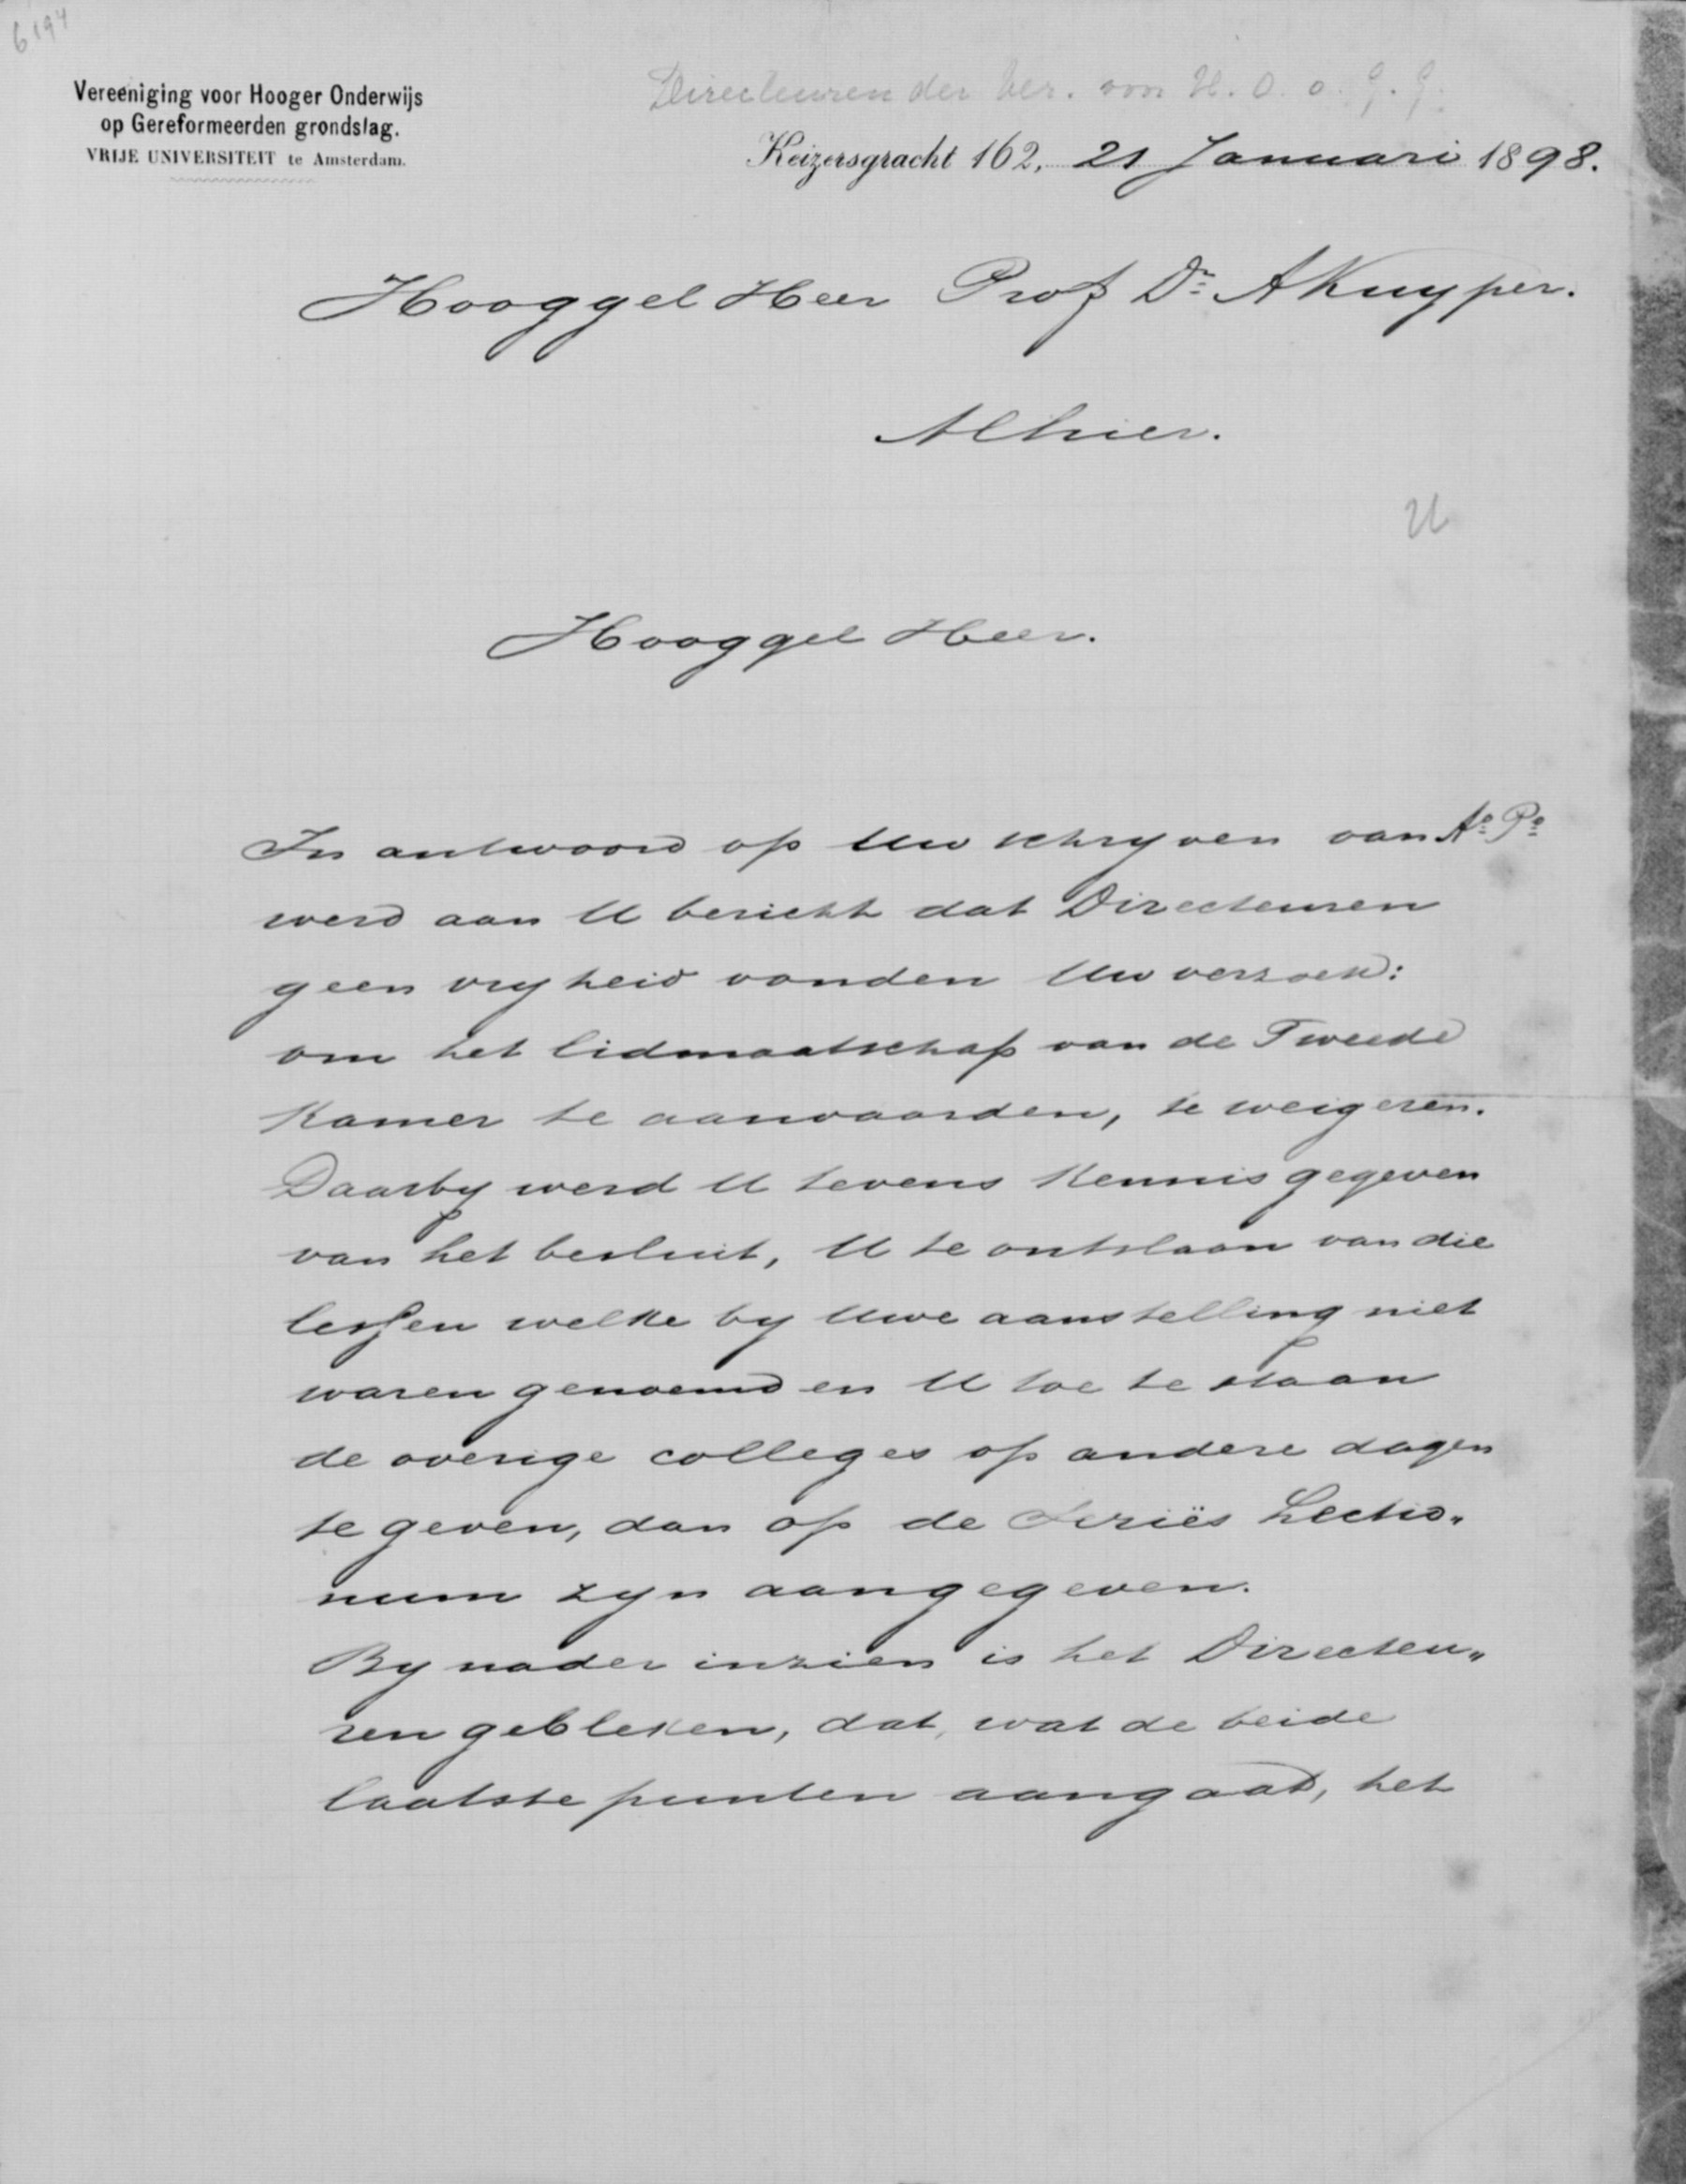 6194
Vereeniging voor Hooger Onderwijs
op Gereformeerden grondslag.
VRIJE UNIVERSITEIT te Amsterdam.
Directeuren der Ver. voor H. O. o. G. G.
Keizersgracht 162, 21 Januari 1898.
Hooggel Heer Prof Dr A Kuyper.
Alhier.
U
Hooggel Heer.
In antwoord op Uw schryven van Ao Po
werd aan U bericht dat Directeuren
geen vryheid vonden Uw verzoek:
om het lidmaatschap van de Tweede
Kamer te aanvaarden, te weigeren.
Daarby werd U tevens kennis gegeven
van het besluit, U te ontslaan van die
lessen welke by Uwe aanstelling niet
waren genoemd en U toe te staan
de overige colleges op andere dagen
te geven, dan op de Seriës Lectio„
num zyn aangegeven.
By nader inzien is het Directeu„
ren gebleken, dat, wat de beide
laatste punten aangaat, het